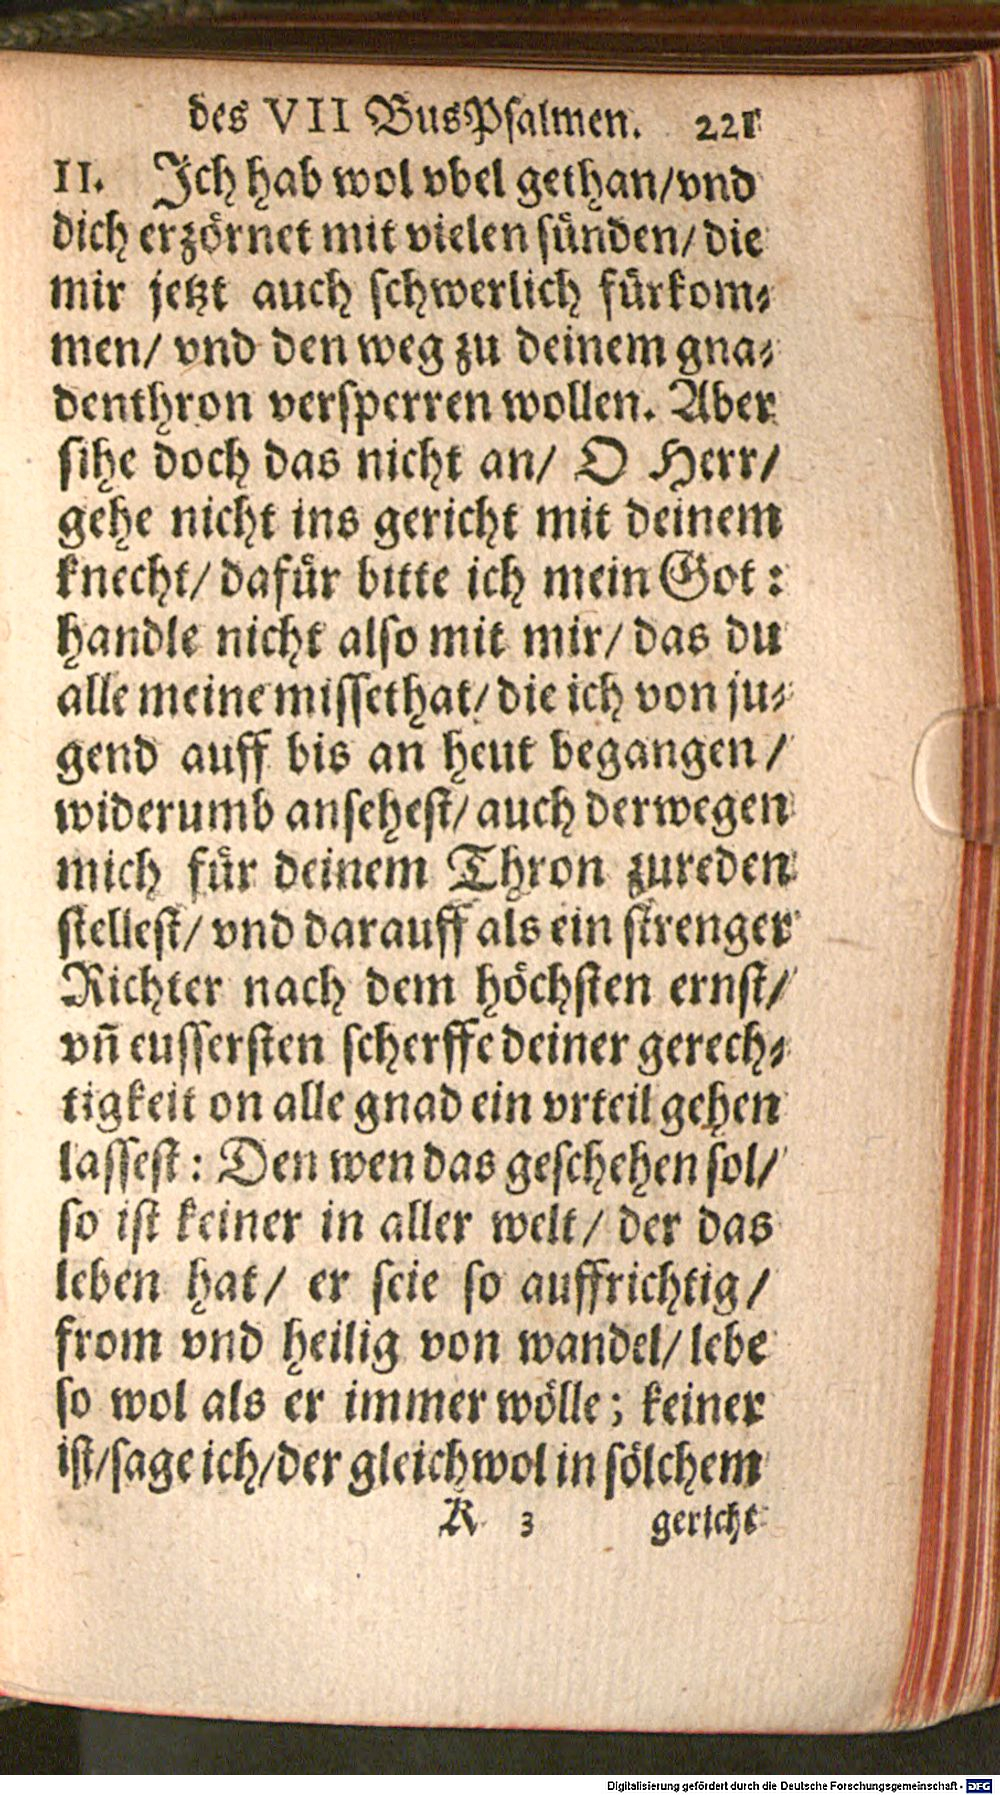 des VII BusPsalmen. 221
II. Ich hab wol vbel gethan/vnd
dich erzörnet mit vielen sünden/die
mir jetzt auch schwerlich fürkom⸗
men/ vnd den weg zu deinem gna⸗
denthron versperren wollen. Aber
sihe doch das nicht an/ O Herr/
gehe nicht ins gericht mit deinem
knecht/ dafür bitte ich mein Got:
handle nicht also mit mir/ das du
alle meine missethat/ die ich von ju⸗
gend auff bis an heut begangen/
widerumb ansehest/ auch derwegen
mich für deinem Thron zureden
stellest/ vnd darauff als ein strenger
Richter nach dem höchsten ernst/
vñ eussersten scherffe deiner gerech⸗
tigkeit on alle gnad ein vrteil gehen
lassest: Den wen das geschehen sol/
so ist keiner in aller welt/ der das
leben hat/ er seie so auffrichtig/
from vnd heilig von wandel/ lebe
so wol als er immer wölle; keiner
ist/sage ich/der gleichwol in sölchem
K 3 gericht
Digitalisierung gefördert durch die Deutsche Forschungsgemeinschaft - DFG